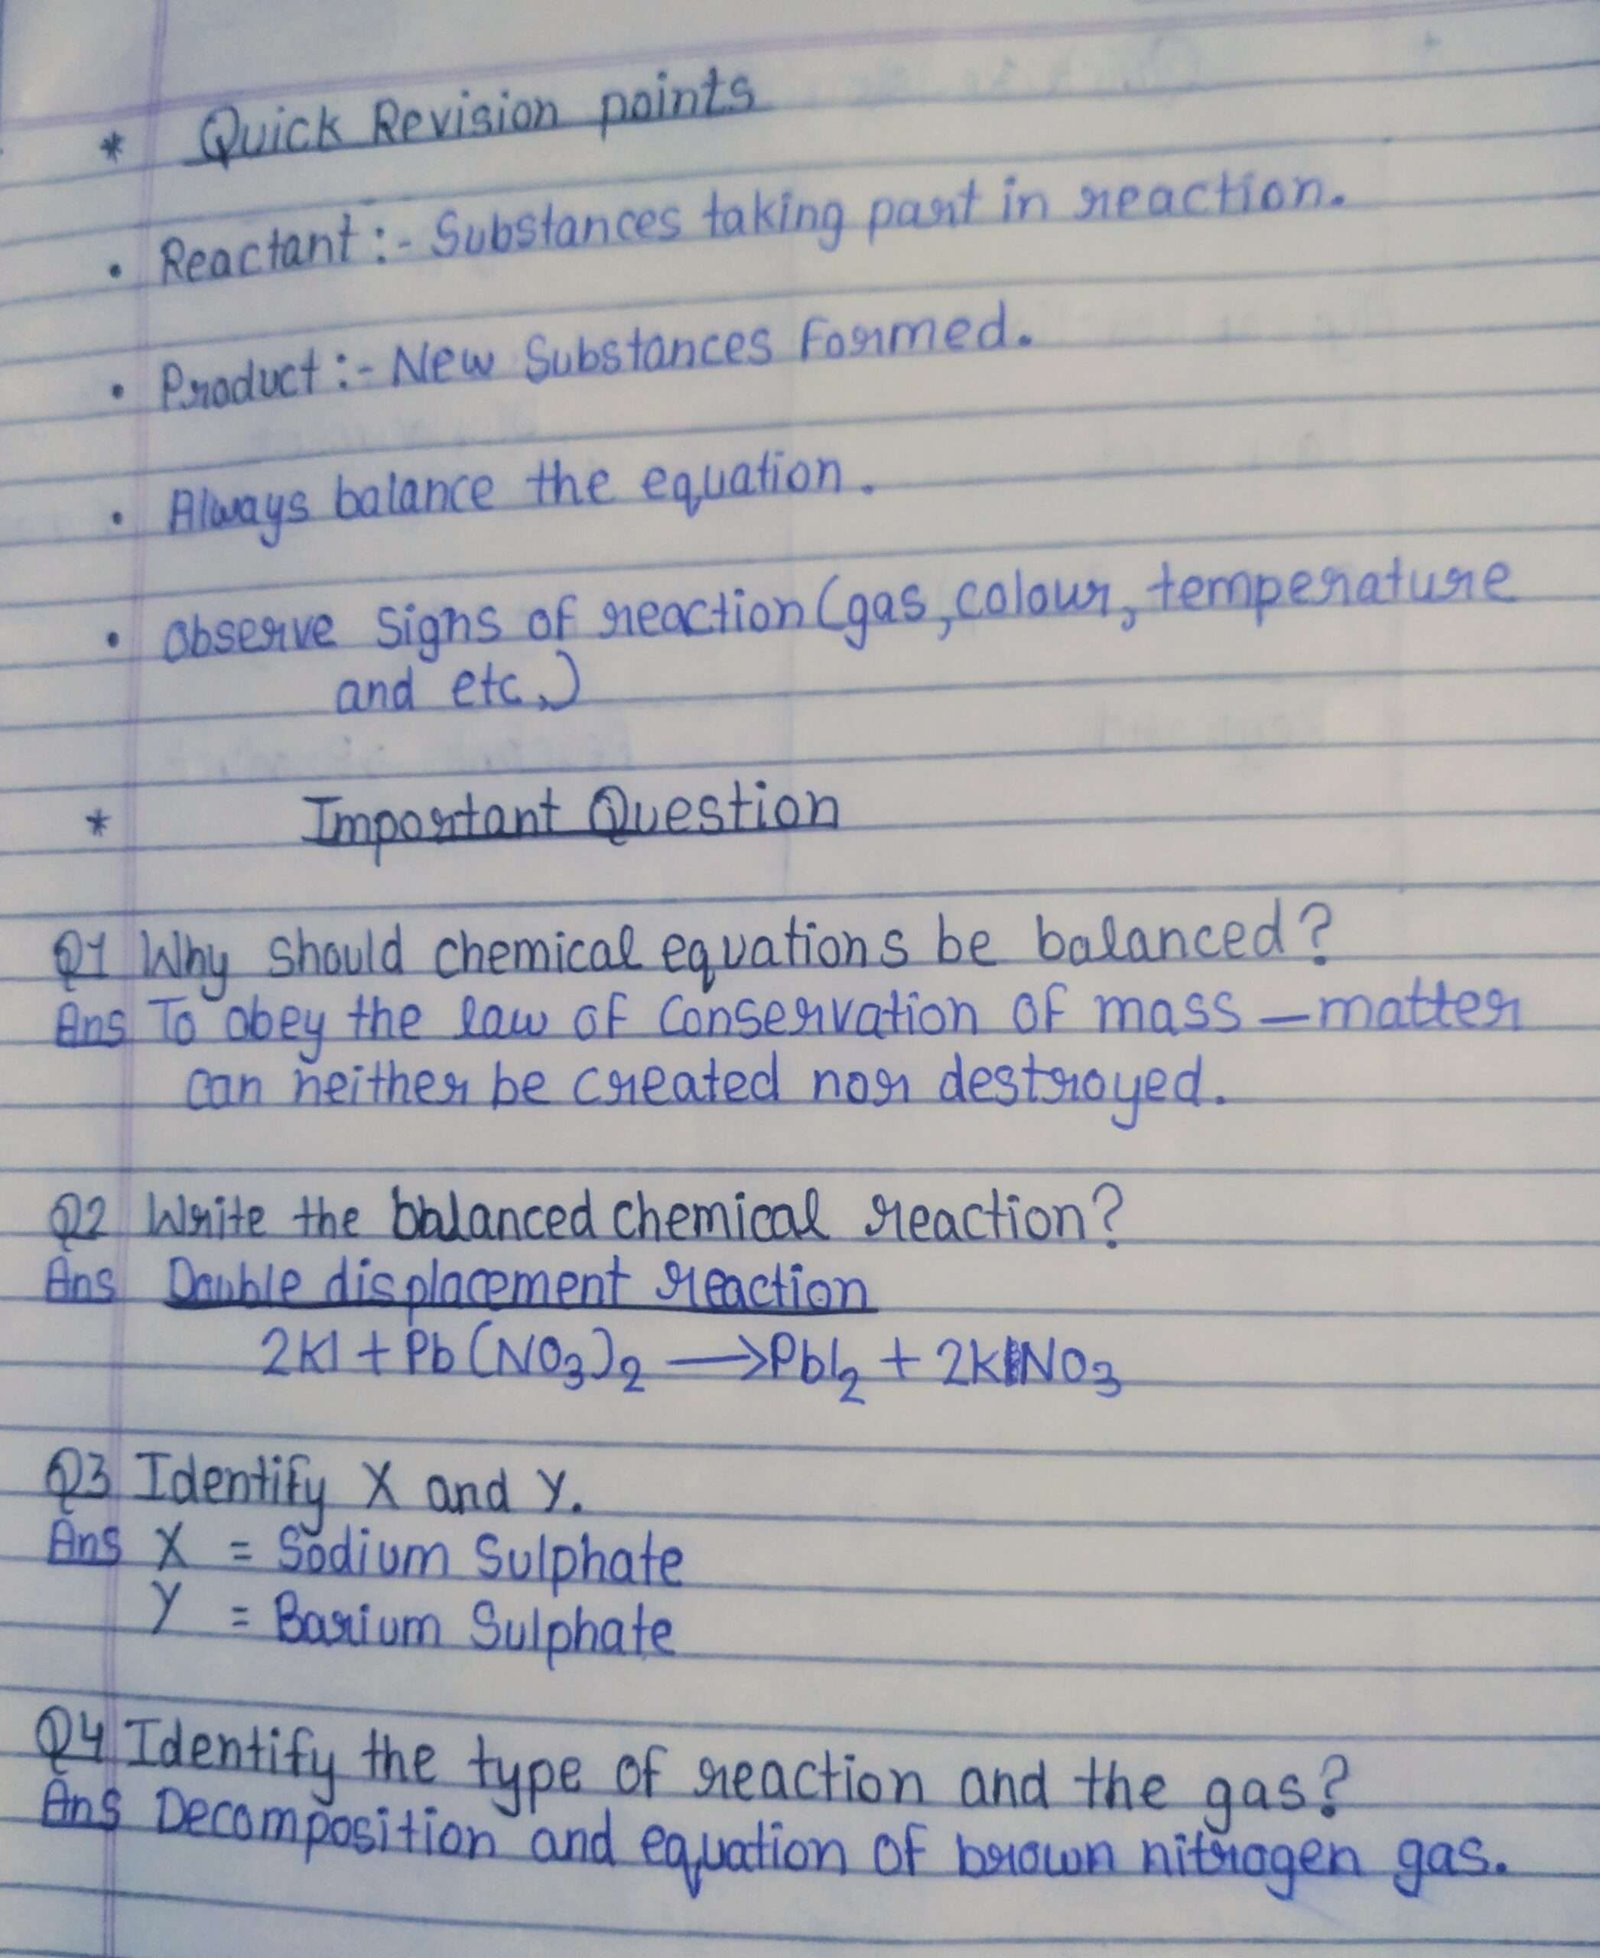 * Quick Revision points
• Reactant :- Substances taking part in reaction.
• Product :- New Substances Formed.
• Always balance the equation.
• Observe signs of reaction (gas, colour, temperature
and etc.)
* Important Question
Q1 Why should chemical equations be balanced?
Ans To obey the law of Conservation of mass – matter
can neither be created nor destroyed.
Q2 Write the balanced chemical reaction?
Ans Double displacement reaction
2KI + Pb(NO₃)₂ ⟶ PbI₂ + 2KNO₃
Q3 Identify X and Y.
Ans X = Sodium Sulphate
Y = Barium Sulphate
Q4 Identify the type of reaction and the gas?
Ans Decomposition and equation of brown nitrogen gas.